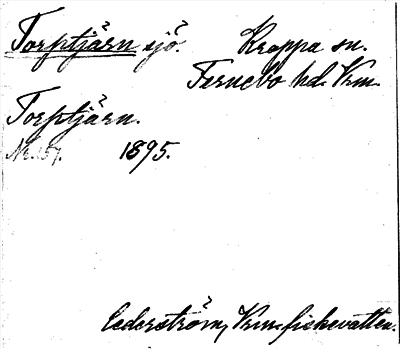 Torptjärn sjö. Kroppa sn.
Fernebo hd. Vrm.
Torptjärn.
Nr. 157. 1895.
Cederström, Vrm. fiskevatten.